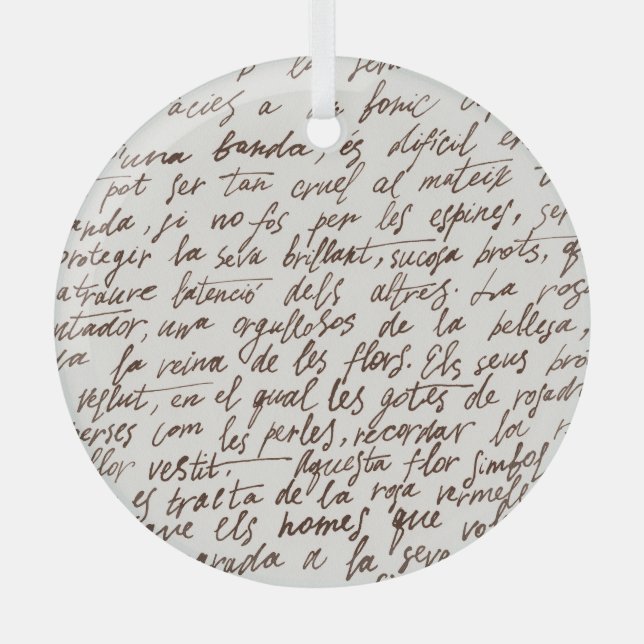 la
àcies a un bonic
d'una banda, és difícil en
pot ser tan cruel al mateix t
anda, si no fos per les espines, ser
protegir la seva brillant, sucosa brots, q
atraure l'atenció dels altres. La ros
ntador, una orgullosos de la bellesa,
va la reina de les flors. Els seus bro
vellut, en el qual les gotes de rosada
erses com les perles, recordar la
flor vestit. Aquesta flor simbol
es tracta de la rosa vermell
ave els homes que vol
grada a la seva